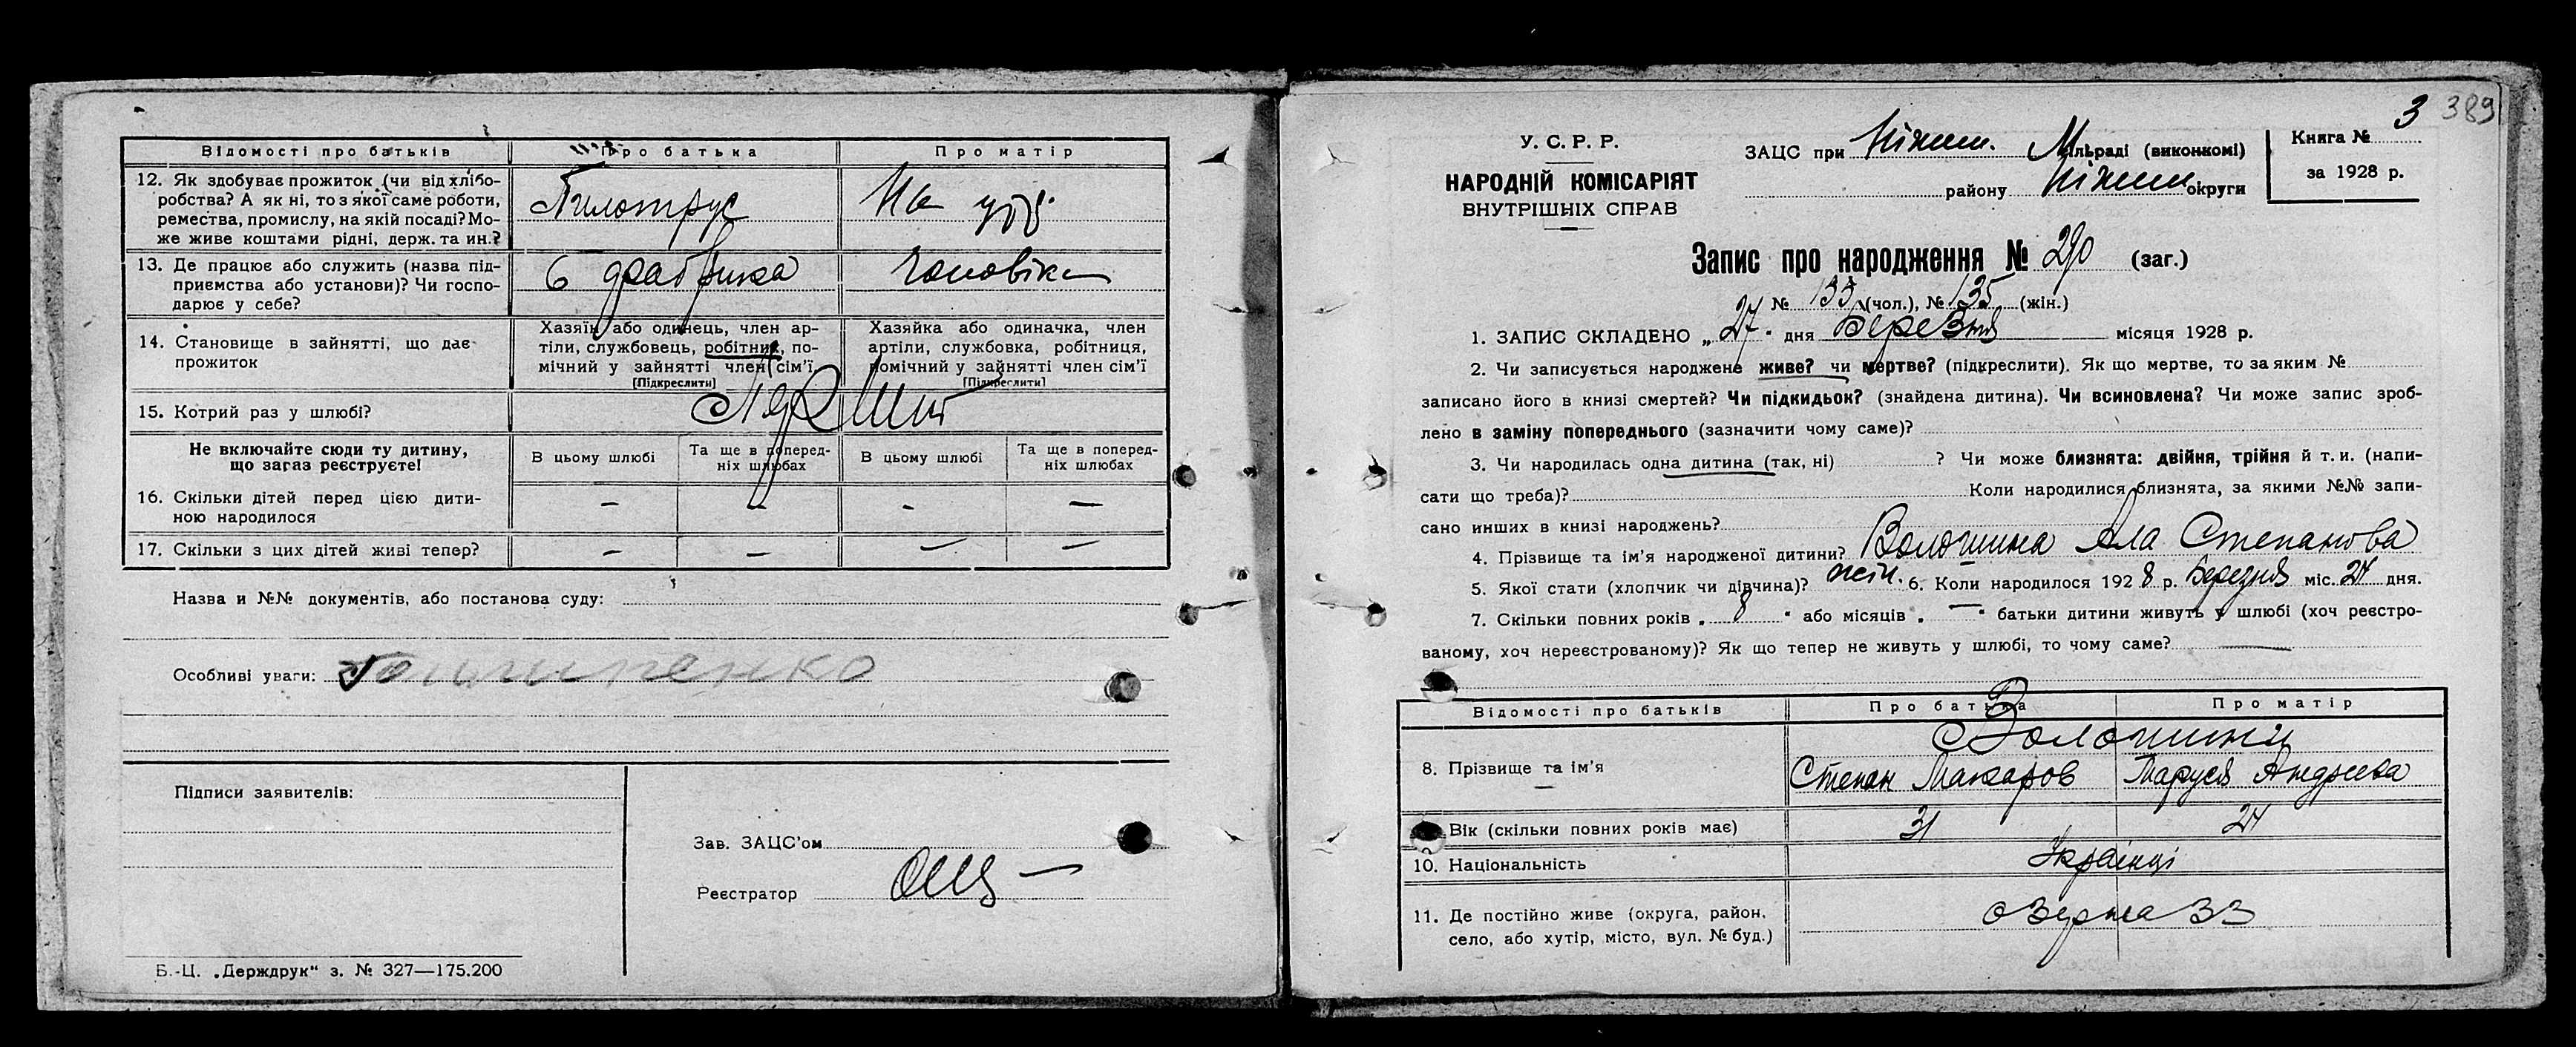 Відомості про батьків Про батька Про матір
12. Як здобуває прожиток (чи від хлібо-
робства? А як ні, то з якої саме роботи,
ремества, промислу, на якій посаді? Мо-
же живе коштами рідні, держ. та ин.?
На
13. Де працює або служить (назва під-
приємства або установи)? Чи госпо-
дарює у себе?
фабрика чоловіка
14. Становище в зайнятті, що дає
прожиток
Хазяїн або одинець, член ар-
тілі, службовець, робітник, по-
мічний у зайнятті член сім'ї
[Підкреслити]
Хазяйка або одиначка, член
артіли, службовка, робітниця,
помічний у зайнятті член сім'ї
[Підкреслити]
15. Котрий раз у шлюбі?
Не включайте сюди ту дитину,
що загаз реєструєте!
В цьому шлюбі
Та ще в поперед-
ніх шлюбах
В цьому шлюбі
Та ще в поперед-
ніх шлюбах
16. Скільки дітей перед цією дити-
ною народилося — — - —
17. Скільки з цих дітей живі тепер? — — — —
Назва и №№ документів, або постанова суду:
Особливі уваги:
Підписи заявителів:
Зав. ЗАЦС'ом
Реєстратор
Б.-Ц. „Держдрук" з. № 327—175.200
389
У. С. Р. Р.
НАРОДНІЙ КОМІСАРІЯТ
ВНУТРІШНІХ СПРАВ
ЗАЦС при Ніжин. Міськраді (виконкомі)
району Ніжин округи
Книга № 3
за 1928 р.
Запис про народження № 290 (заг.)
№ 155 (чол.), № 135 (жін.)
1. ЗАПИС СКЛАДЕНО „27" дня Березня місяця 1928 р.
2. Чи записується народжене живе? чи мертве? (підкреслити). Як що мертве, то за яким №
записано його в книзі смертей? Чи підкидьок? (знайдена дитина). Чи всиновлена? Чи може запис зроб-
лено в заміну попереднього (зазначити чому саме)?
3. Чи народилась одна дитина (так, ні) ? Чи може близнята: двійня, трійня й т. и. (напи-
сати що треба)? Коли народилися близнята, за якими №№ запи-
сано инших в книзі народжень?
4. Прізвище та ім'я народженої дитини? Волошина Ала Степанова
5. Якої стати (хлопчик чи дівчина)? жін. 6. Коли народилося 1928 р. Березня міс. 24 дня.
7. Скільки повних років „ 8 " або місяців „ — " батьки дитини живуть у шлюбі (хоч реєстро-
ваному, хоч нереєстрованому)? Як що тепер не живуть у шлюбі, то чому саме? —
Відомості про батьків Про батька Про матір
8. Прізвище та ім'я
Волошини
Степан Макаров Маруся Андреева
Вік (скільки повних років має) 31 24
10. Національність Українці
11. Де постійно живе (округа, район,
село, або хутір, місто, вул. № буд.)
33